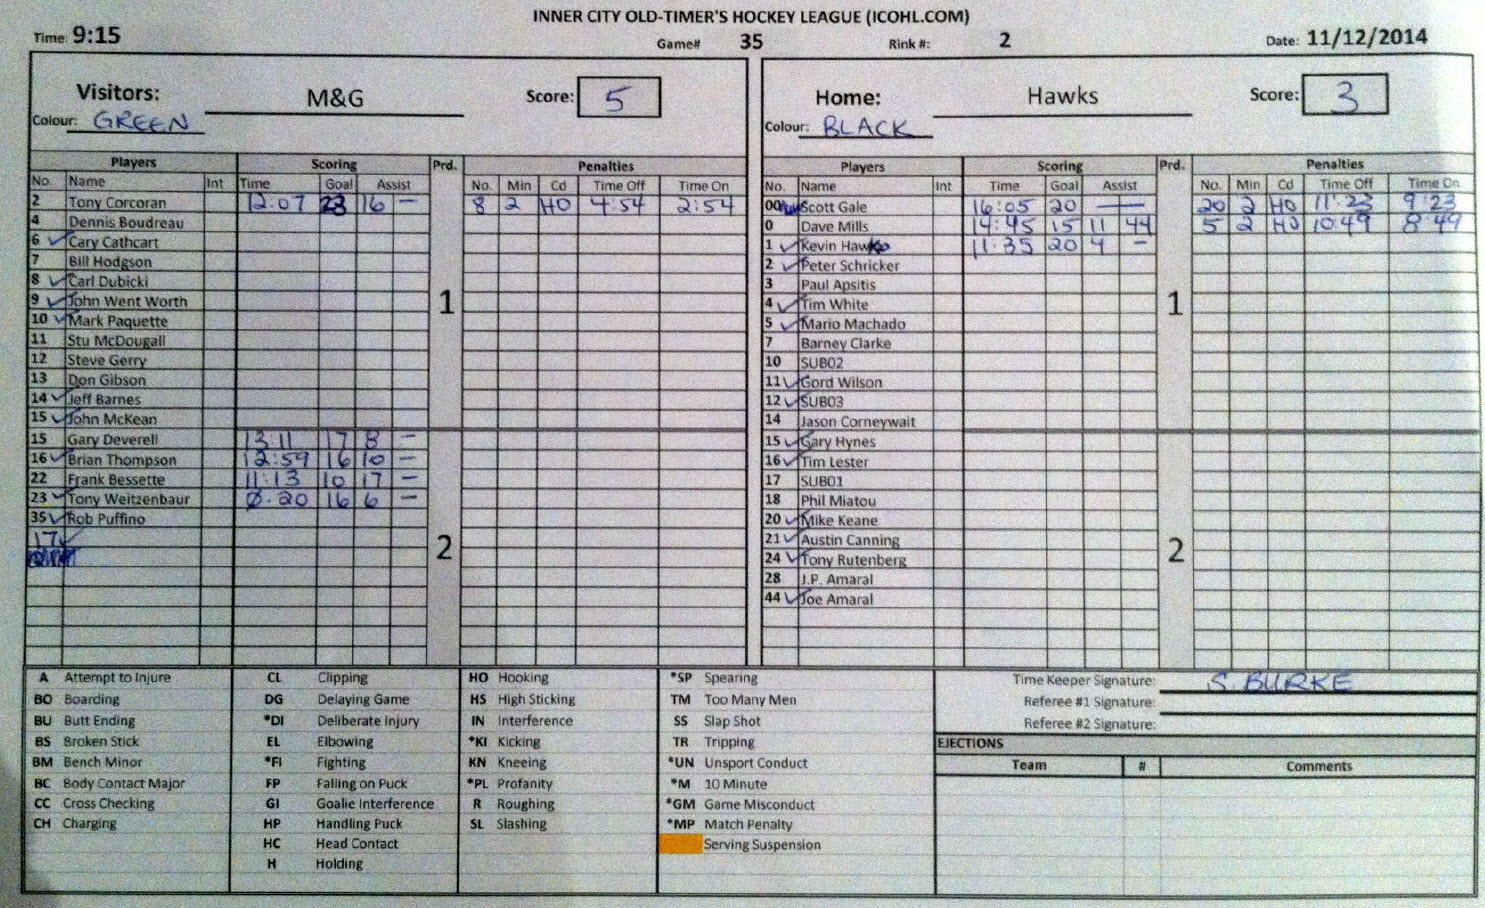 INNER CITY OLD-TIMER'S HOCKEY LEAGUE (ICOHL.COM)
Time: 9:15 Game# 35 Rink #: 2 Date: 11/12/2014
Visitors: M&G Score: 5
Colour: GREEN
Players Scoring Prd. Penalties
No. Name Int Time Goal Assist No. Min Cd Time Off Time On
2 Tony Corcoran 12:07 23 16 — 8 2 HO 4:54 2:54
4 Dennis Boudreau
6 ✓ Cary Cathcart
7 Bill Hodgson
8 ✓ Carl Dubicki
9 ✓ John Went Worth
1
10 ✓ Mark Paquette
11 Stu McDougall
12 Steve Gerry
13 Don Gibson
14 ✓ Jeff Barnes
15 ✓ John McKean
15 Gary Deverell 13:11 17 8 —
16 ✓ Brian Thompson 12:59 16 10 —
22 Frank Bessette 11:13 10 17 —
23 ✓ Tony Weitzenbaur 0:20 16 6 —
35 ✓ Rob Puffino
17 ✓
2
Home: Hawks Score: 3
Colour: BLACK
Players Scoring Prd. Penalties
No. Name Int Time Goal Assist No. Min Cd Time Off Time On
00 Scott Gale 16:05 20 — 20 2 HO 11:23 9:23
0 Dave Mills 14:45 15 11 44 5 2 HO 10:49 8:49
1 ✓ Kevin 11:35 20 4 —
2 ✓ Peter Schricker
3 Paul Apsitis
4 ✓ Tim White
1
5 ✓ Mario Machado
7 Barney Clarke
10 SUB02
11 ✓ Gord Wilson
12 ✓ SUB03
14 Jason Corneywait
15 ✓ Gary Hynes
16 ✓ Tim Lester
17 SUB01
18 Phil Miatou
20 ✓ Mike Keane
21 ✓ Austin Canning
2
24 ✓ Tony Rutenberg
28 J.P. Amaral
44 ✓ Joe Amaral
A Attempt to Injure
BO Boarding
BU Butt Ending
BS Broken Stick
BM Bench Minor
BC Body Contact Major
CC Cross Checking
CH Charging
CL Clipping
DG Delaying Game
*DI Deliberate Injury
EL Elbowing
*FI Fighting
FP Falling on Puck
GI Goalie Interference
HP Handling Puck
HC Head Contact
H Holding
HO Hooking
HS High Sticking
IN Interference
*KI Kicking
KN Kneeing
*PL Profanity
R Roughing
SL Slashing
*SP Spearing
TM Too Many Men
SS Slap Shot
TR Tripping
*UN Unsport Conduct
*M 10 Minute
*GM Game Misconduct
*MP Match Penalty
Serving Suspension
Time Keeper Signature: S. BURKE
Referee #1 Signature:
Referee #2 Signature:
EJECTIONS
Team # Comments